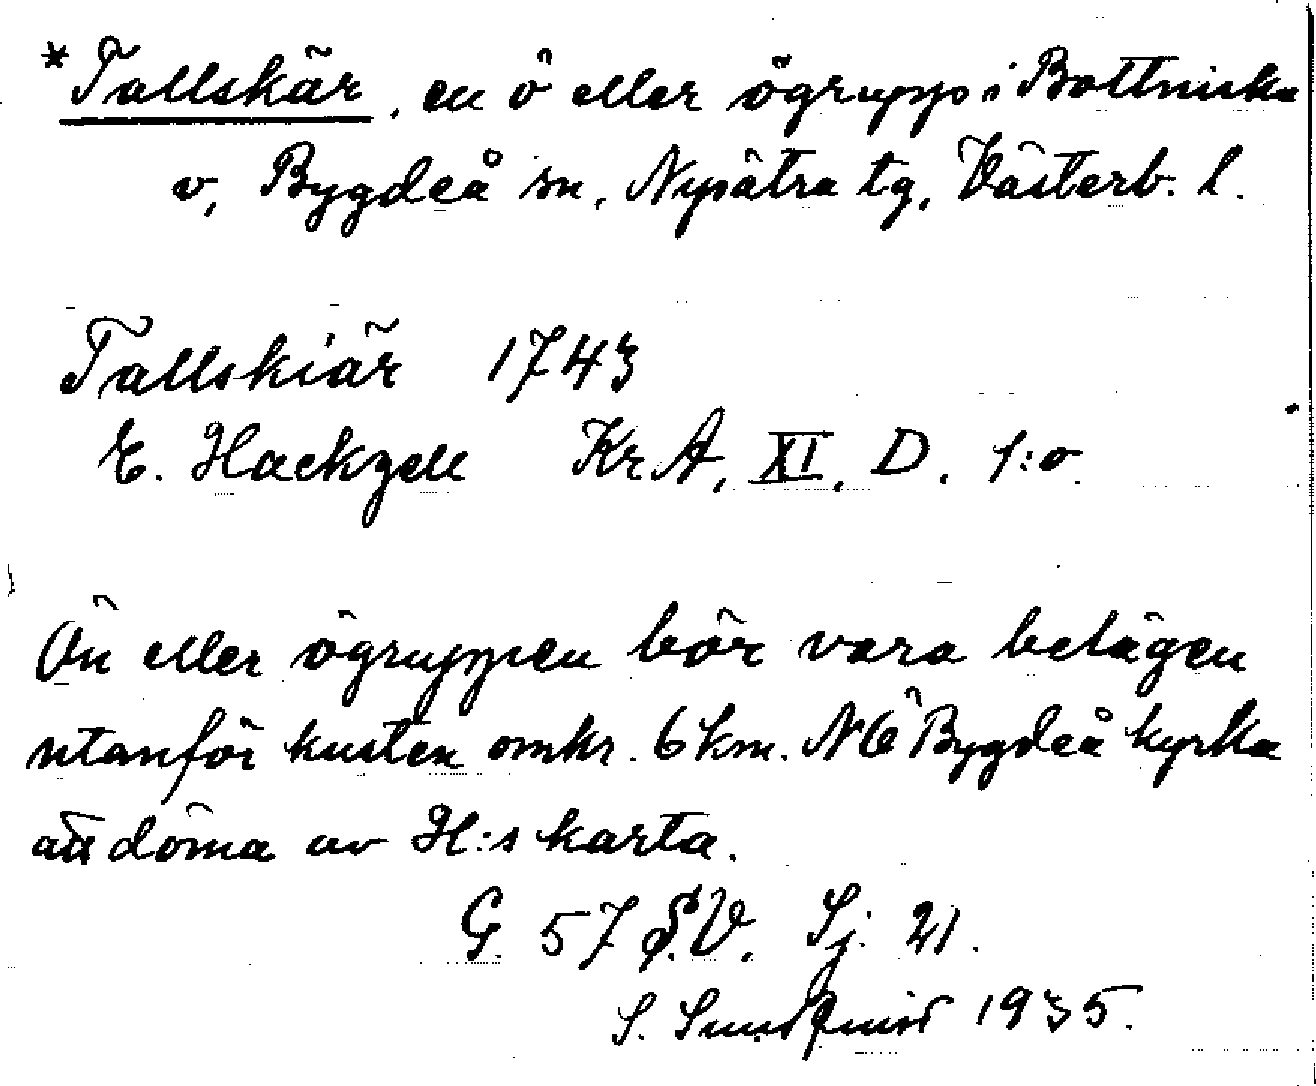 *Tallskär, en ö eller ögrupp i Bottniska
v, Bygdeå sn, Nysätra tg, Västerb. l.
Tallskiär 1743
E. Hackzell KrA, XI, D. 1:o
Ön eller ögruppen bör vara belägen
utanför kusten omkr. 6 km. NÖ Bygdeå kyrka
att döma av H:s karta.
G 57 S.V. Sj. 21.
S. Sundquist 1935.